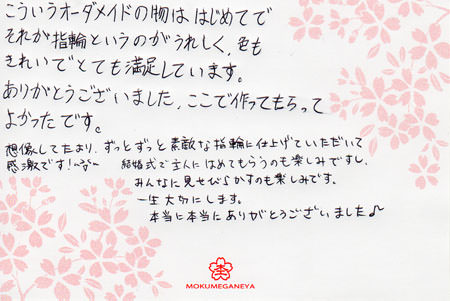 こういうオーダメイドの物は はじめてで
それが指輪というのがうれしく、色も
きれいでとても満足しています。
ありがとうございました。ここで作ってもらって
よかったです。
想像してたより、ずっとずっと素敵な指輪に仕上げていただいて
感激です！^^ 結婚式で主人にはめてもらうのも楽しみですし、
みんなに見せびらかすのも楽しみです。
一生大切にします。
本当に本当にありがとうございました♪
MOKUMEGANEYA